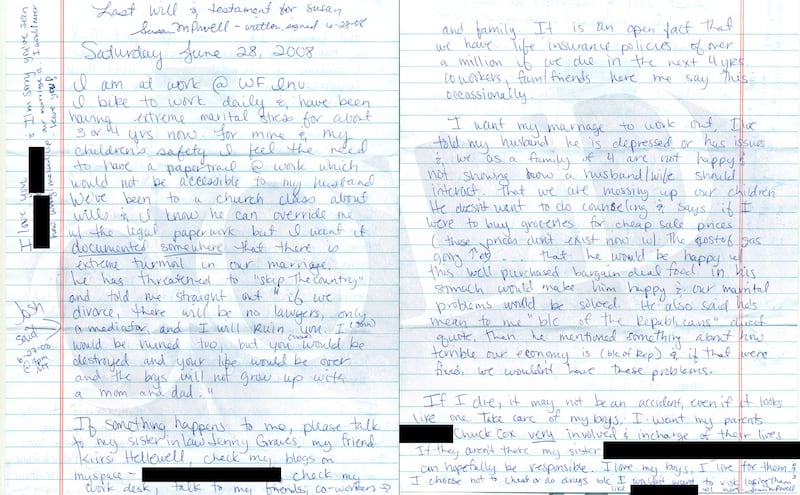 Last Will & testament for Susan
Susan M Powell - written, signed 6-28-08
Saturday June 28, 2008
I am at work @ WF Inv.
I bike to work daily & have been
having extreme marital stress for about
3 or 4 yrs now. For mine & my
children's safety I feel the need
to have a papertrail @ work which
would not be accessible to my husband
We've been to a church class about
wills & I know he can override me
w/ the legal paperwork but I want it
documented somewhere that there is
extreme turmoil in our marriage.
he has threatened to "skip the country"
and told me straight out "if we
divorce, there will be no lawyers, only
a mediator, and I will ruin you. I
would be ruined too, but you would be
destroyed and your life would be over
and the boys will not grow up with
a mom and dad."
If something happens to me, please talk
to my sister in law Jenny Graves, my friend
Kiirsi Hellewell, check my blogs on
myspace - check my
work desk, talk to my friends, co-workers →
I love you
& I'm sorry you've seen
our marriage
I would never
leave you!
Josh
said
and family. It is an open fact that
we have life insurance policies of over
a million if we die in the next 4 yrs.
coworkers, fam/friends here me say this
occassionally.
I want my marriage to work out, I've
told my husband he is depressed or has issues
& we as a family of 4 are not happy &
not showing how a husband/wife should
interact. That we are messing up our children
He doesn't want to do counseling & says if I
were to buy groceries for cheap sale prices
(these prices don't exist now w/ the cost of gas
going ↑ etc) ... that he would be happy w/
this well purchased bargain deal food in his
stomach would make him happy & our marital
problems would be solved. He also said he's
mean to me "b/c of the Republicans" direct
quote, then he mentioned something about how
terrible our economy is (b/c of Rep) & if that were
fixed, we wouldn't have these problems.
If I die, it may not be an accident, even if it looks
like one. Take care of my boys. I want my parents
Chuck Cox very involved & incharge of their lives
If they arent there my sister
can hopefully be responsible. I love my boys, I live for them &
I choose not to cheat or do drugs b/c I wouldn't want to risk losing them
like